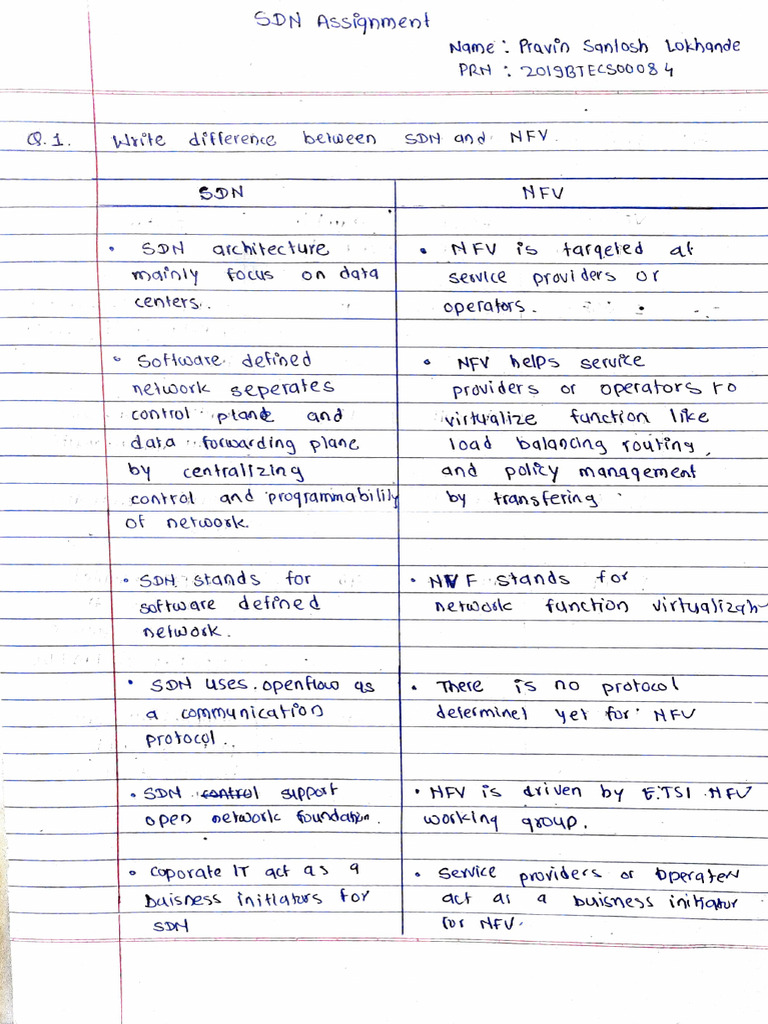 SDN Assignment
Name : Pravin Santosh Lokhande
PRN : 2019BTECS00084
Q.1. Write difference between SDN and NFV.
SDN
• SDN architecture
mainly focus on data
centers.
• Software defined
network seperates
control plane and
data forwarding plane
by centralizing
control and programmability
of network.
• SDN stands for
software defined
network.
• SDN uses openflow as
a communication
protocol.
• SDN control support
open network foundation.
• Coporate IT act as a
Buisness initiators for
SDN
NFV
• NFV is targeted at
service providers or
operators.
• NFV helps service
providers or operators to
virtualize function like
load balancing routing,
and policy management
by transfering
• NVF stands for
network function
• There is no protocol
determinet yet for NFV
• NFV is driven by E.TSI NFV
working group.
• Service providers or
act as a buisness initiator
for NFV.